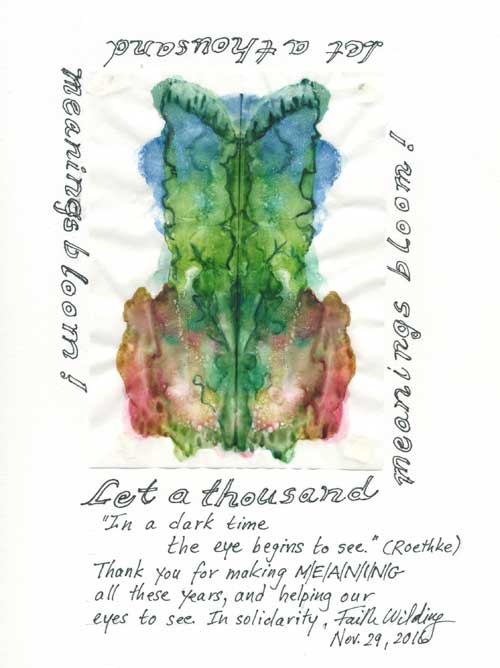 Let a thousand
meanings bloom!
meanings bloom!
Let a thousand
"In a dark time
the eye begins to see." (Roethke)
Thank you for making M/E/A/N/I/N/G
all these years, and helping our
eyes to see. In solidarity, Faith Wilding
Nov. 29, 2016